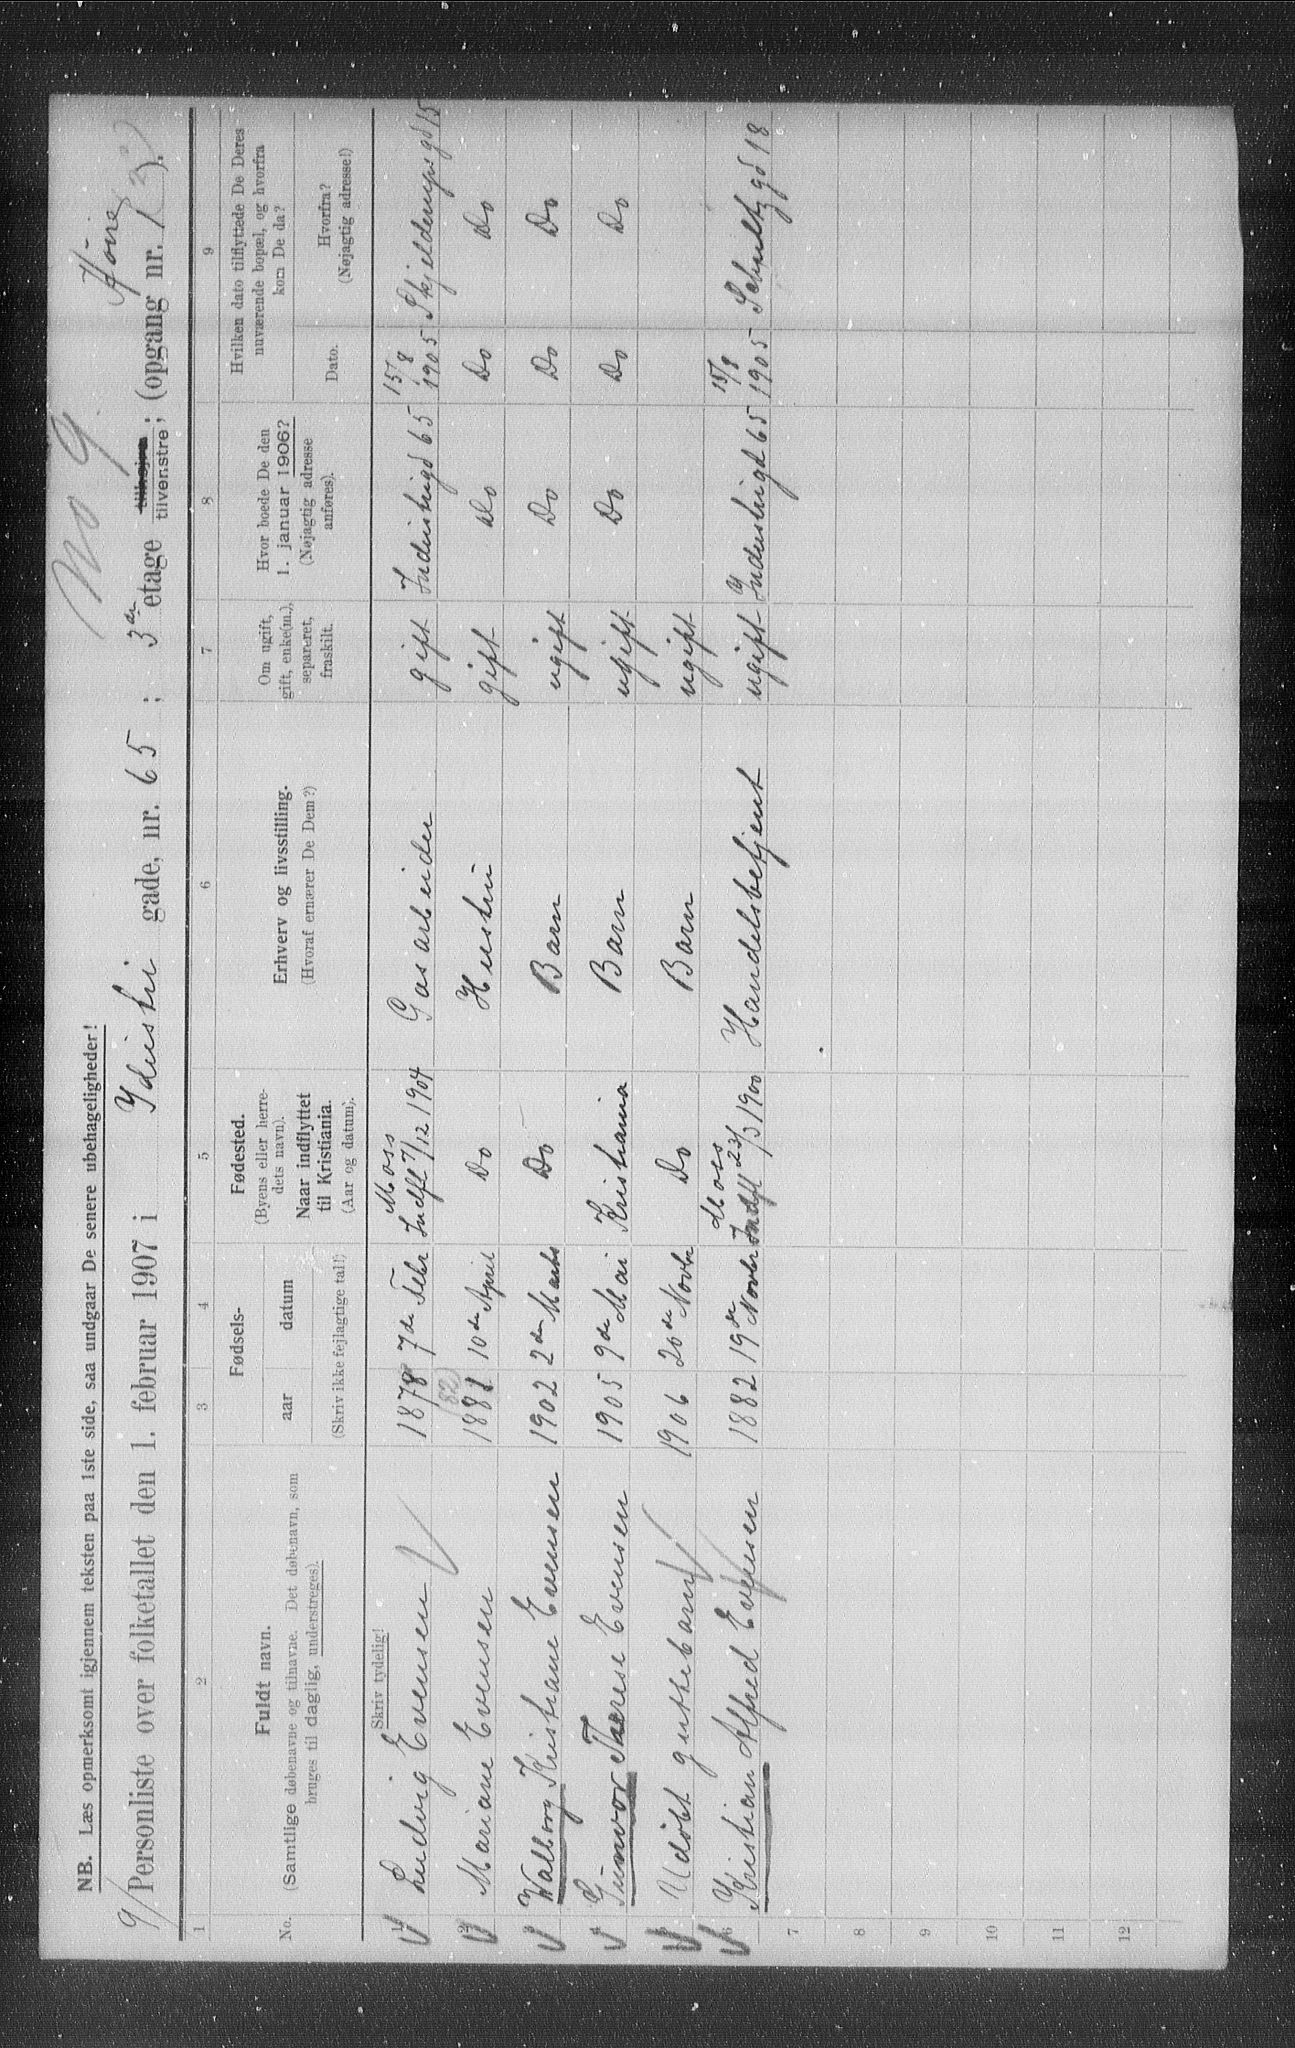 No 9
Høire
NB. Læs opmerksomt igjennem teksten paa 1ste side, saa undgaar De senere ubehageligheder!
9/ Personliste over folketallet den 1. februar 1907 i Idustri gade, nr. 65 ; 3de etage tilhøjre tilvenstre; (opgang nr. 1 ).
1 2 3 4 5 6 7 8 9
No.
Fuldt navn.
(Samtlige døbenavne og tilnavne. Det døbenavn, som
bruges til daglig, understreges).
Fødsels-
aar datum
(Skriv ikke fejlagtige tal!)
Fødested.
(Byens eller herre-
dets navn).
Naar indflyttet
til Kristiania.
(Aar og datum).
Erhverv og livsstilling.
(Hvoraf ernærer De Dem?)
Om ugift,
gift, enke(m.),
separeret,
fraskilt.
Hvor boede De den
1. januar 1906?
(Nøjagtig adresse
anføres).
Hvilken dato tilflyttede De Deres
nuværende bopæl, og hvorfra
kom De da?
Dato.
Hvorfra?
(Nøjagtig adresse!)
Skriv tydelig!
1 Ludvig Evensen 1878 7de Febr Moss Indfl 7/12 1904 Gasarbeider gift Industrigd 65 15/8 1905 Skjeldrups gd 15
2 Mariane Evensen 1881 (82) 10de April Do Hustru gift Do Do Do
3 Walborg Kristiane Evensen 1902 2den Marts Do Barn ugift Do Do Do
4 Gunvor Therese Evensen 1905 9de Mai Kristiania Barn ugift Do Do Do
5 Udøbt guttebarn 1906 20de Novbr Do Barn ugift
6 Kristian Alfred Evensen 1882 19de Novbr Moss Indfl 23/3 1900 Handelsbetjent ugift Industrigd 65 15/8 1905 Schultzgd 18
7
8
9
10
11
12